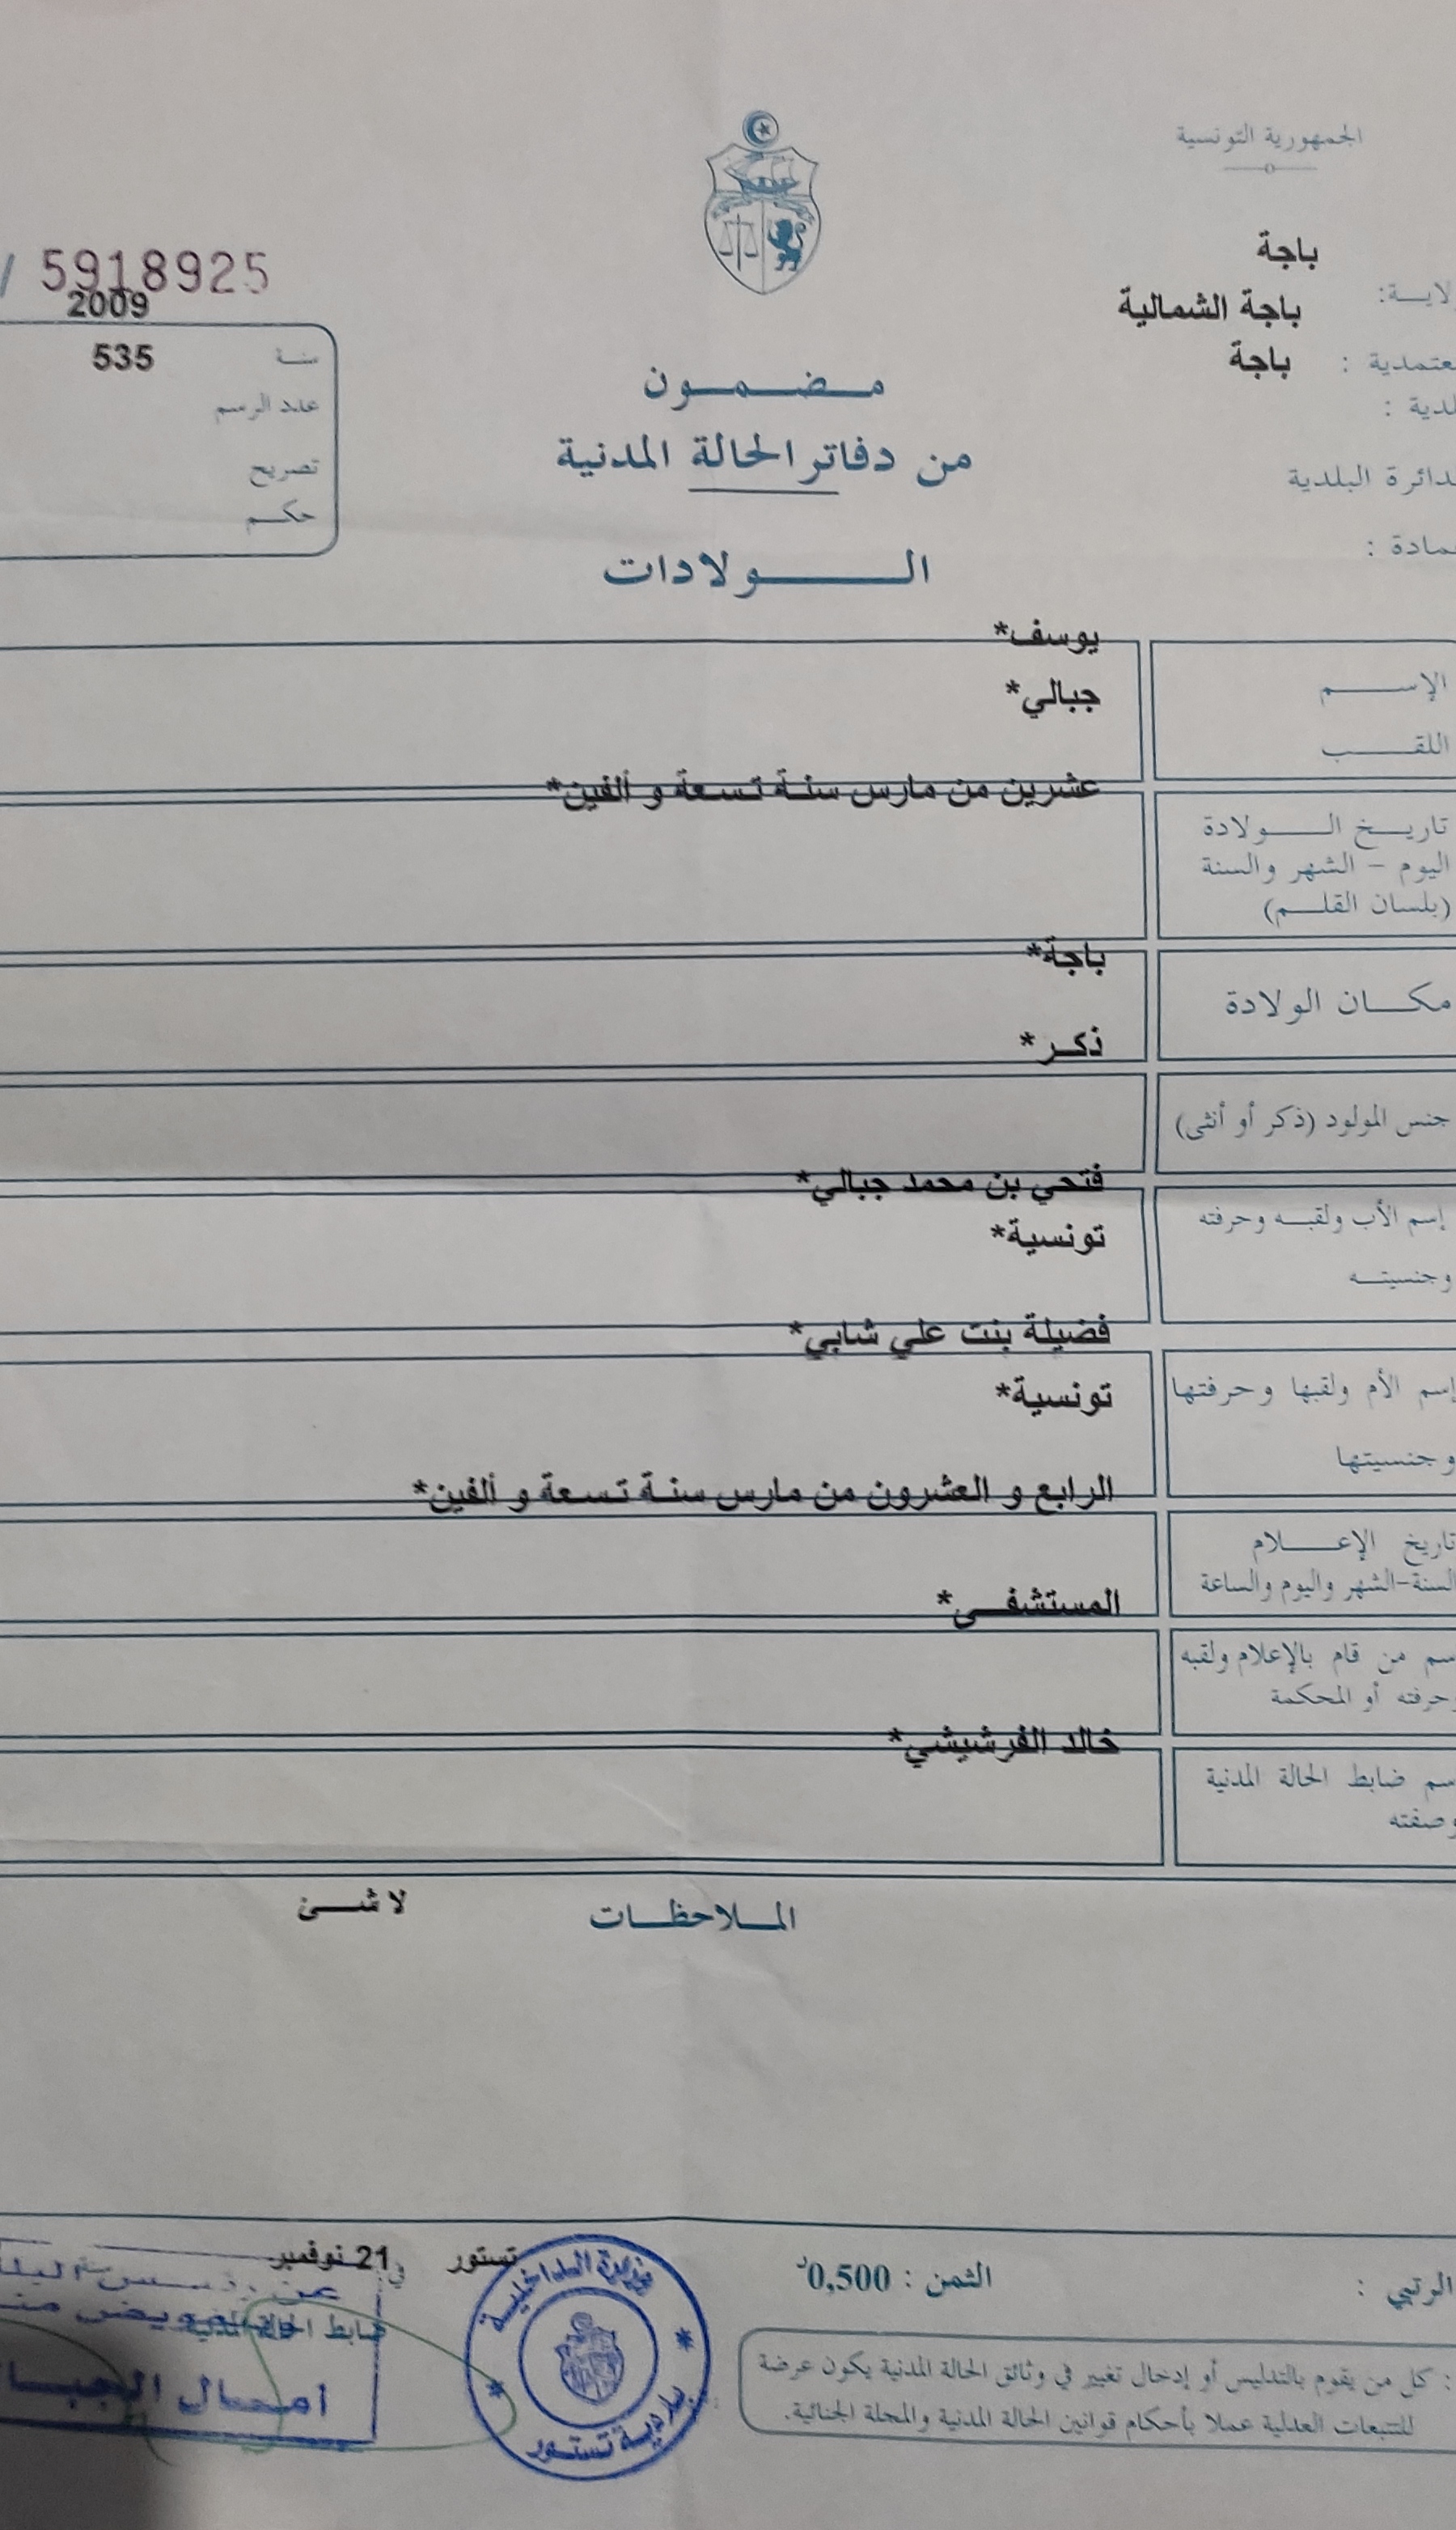 الجمهورية التونسية
باجة
لايـة:
باجة الشمالية
عتمدية :
باجة
لدية :
دائرة البلدية
مادة :
5918925 /
2009
سنة
535
عدد الرسم
تصريح
حكم
مضمون
من دفاتر الحالة المدنية
الولادات
يوسف*
الإسم
جبالي*
اللقب
عشرين من مارس سنة تسعة و ألفين*
تاريخ الولادة
اليوم - الشهر والسنة
(بلسان القلم)
باجة*
مكان الولادة
ذكر*
جنس المولود (ذكر أو أنثى)
فتحي بن محمد جبالي*
إسم الأب ولقبه وحرفته
تونسية*
وجنسيته
فضيلة بنت علي شابي*
إسم الأم ولقبها وحرفتها
تونسية*
وجنسيتها
الرابع و العشرون من مارس سنة تسعة و ألفين*
تاريخ الإعلام
السنة-الشهر واليوم والساعة
المستشفى*
سم من قام بالإعلام ولقبه
وحرفته أو المحكمة
خالد الفرشيشي*
سم ضابط الحالة المدنية
وصفته
الملاحظات
لا شئ
الرتبي :
الثمن : 0,500د
تستور في 21 نوفمبر
ضابط الحالة المدنية
وزارة الداخلية
بلدية تستور
: كل من يقوم بالتدليس أو إدخال تغيير في وثائق الحالة المدنية يكون عرضة
للتتبعات العدلية عملا بأحكام قوانين الحالة المدنية والمجلة الجنائية.